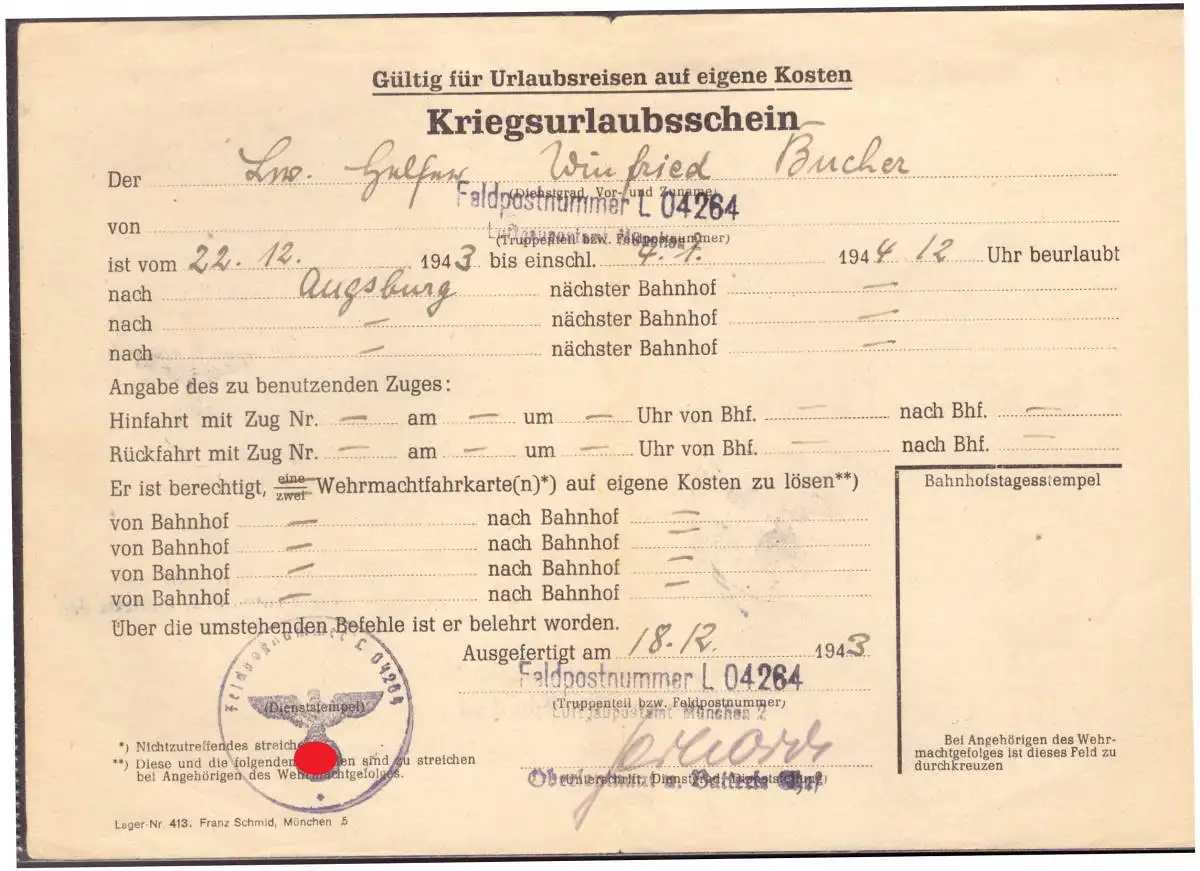 Gültig für Urlaubsreisen auf eigene Kosten
Kriegsurlaubsschein
Der Lw. Helfer Winfried Bucher
(Dienstgrad, Vor- und Zuname)
Feldpostnummer L 04264
von
Luftgaupostamt München 2
(Truppenteil bzw. Feldpostnummer)
ist vom 22. 12. 1943 bis einschl. 4. 1. 1944 12 Uhr beurlaubt
nach Augsburg nächster Bahnhof —
nach — nächster Bahnhof —
nach — nächster Bahnhof —
Angabe des zu benutzenden Zuges:
Hinfahrt mit Zug Nr. — am — um — Uhr von Bhf. — nach Bhf. —
Rückfahrt mit Zug Nr. — am — um — Uhr von Bhf. — nach Bhf. —
Er ist berechtigt, eine/zwei Wehrmachtfahrkarte(n)*) auf eigene Kosten zu lösen**)
Bahnhofstagesstempel
von Bahnhof — nach Bahnhof —
von Bahnhof — nach Bahnhof —
von Bahnhof — nach Bahnhof —
von Bahnhof — nach Bahnhof —
Über die umstehenden Befehle ist er belehrt worden.
Ausgefertigt am 18. 12. 1943
Feldpostnummer L 04264
Feldpostnummer L 04264
(Truppenteil bzw. Feldpostnummer)
Luftgaupostamt München 2
(Dienststempel)
*) Nichtzutreffendes streiche
**) Diese und die folgenden en sind zu streichen
bei Angehörigen des Wehrmachtgefolges.
(Unterschrift, Dienstgrad, Dienststellung)
Oberleutnant u. Batterie Chef
Bei Angehörigen des Wehr-
machtgefolges ist dieses Feld zu
durchkreuzen
Lager-Nr. 413. Franz Schmid, München 5